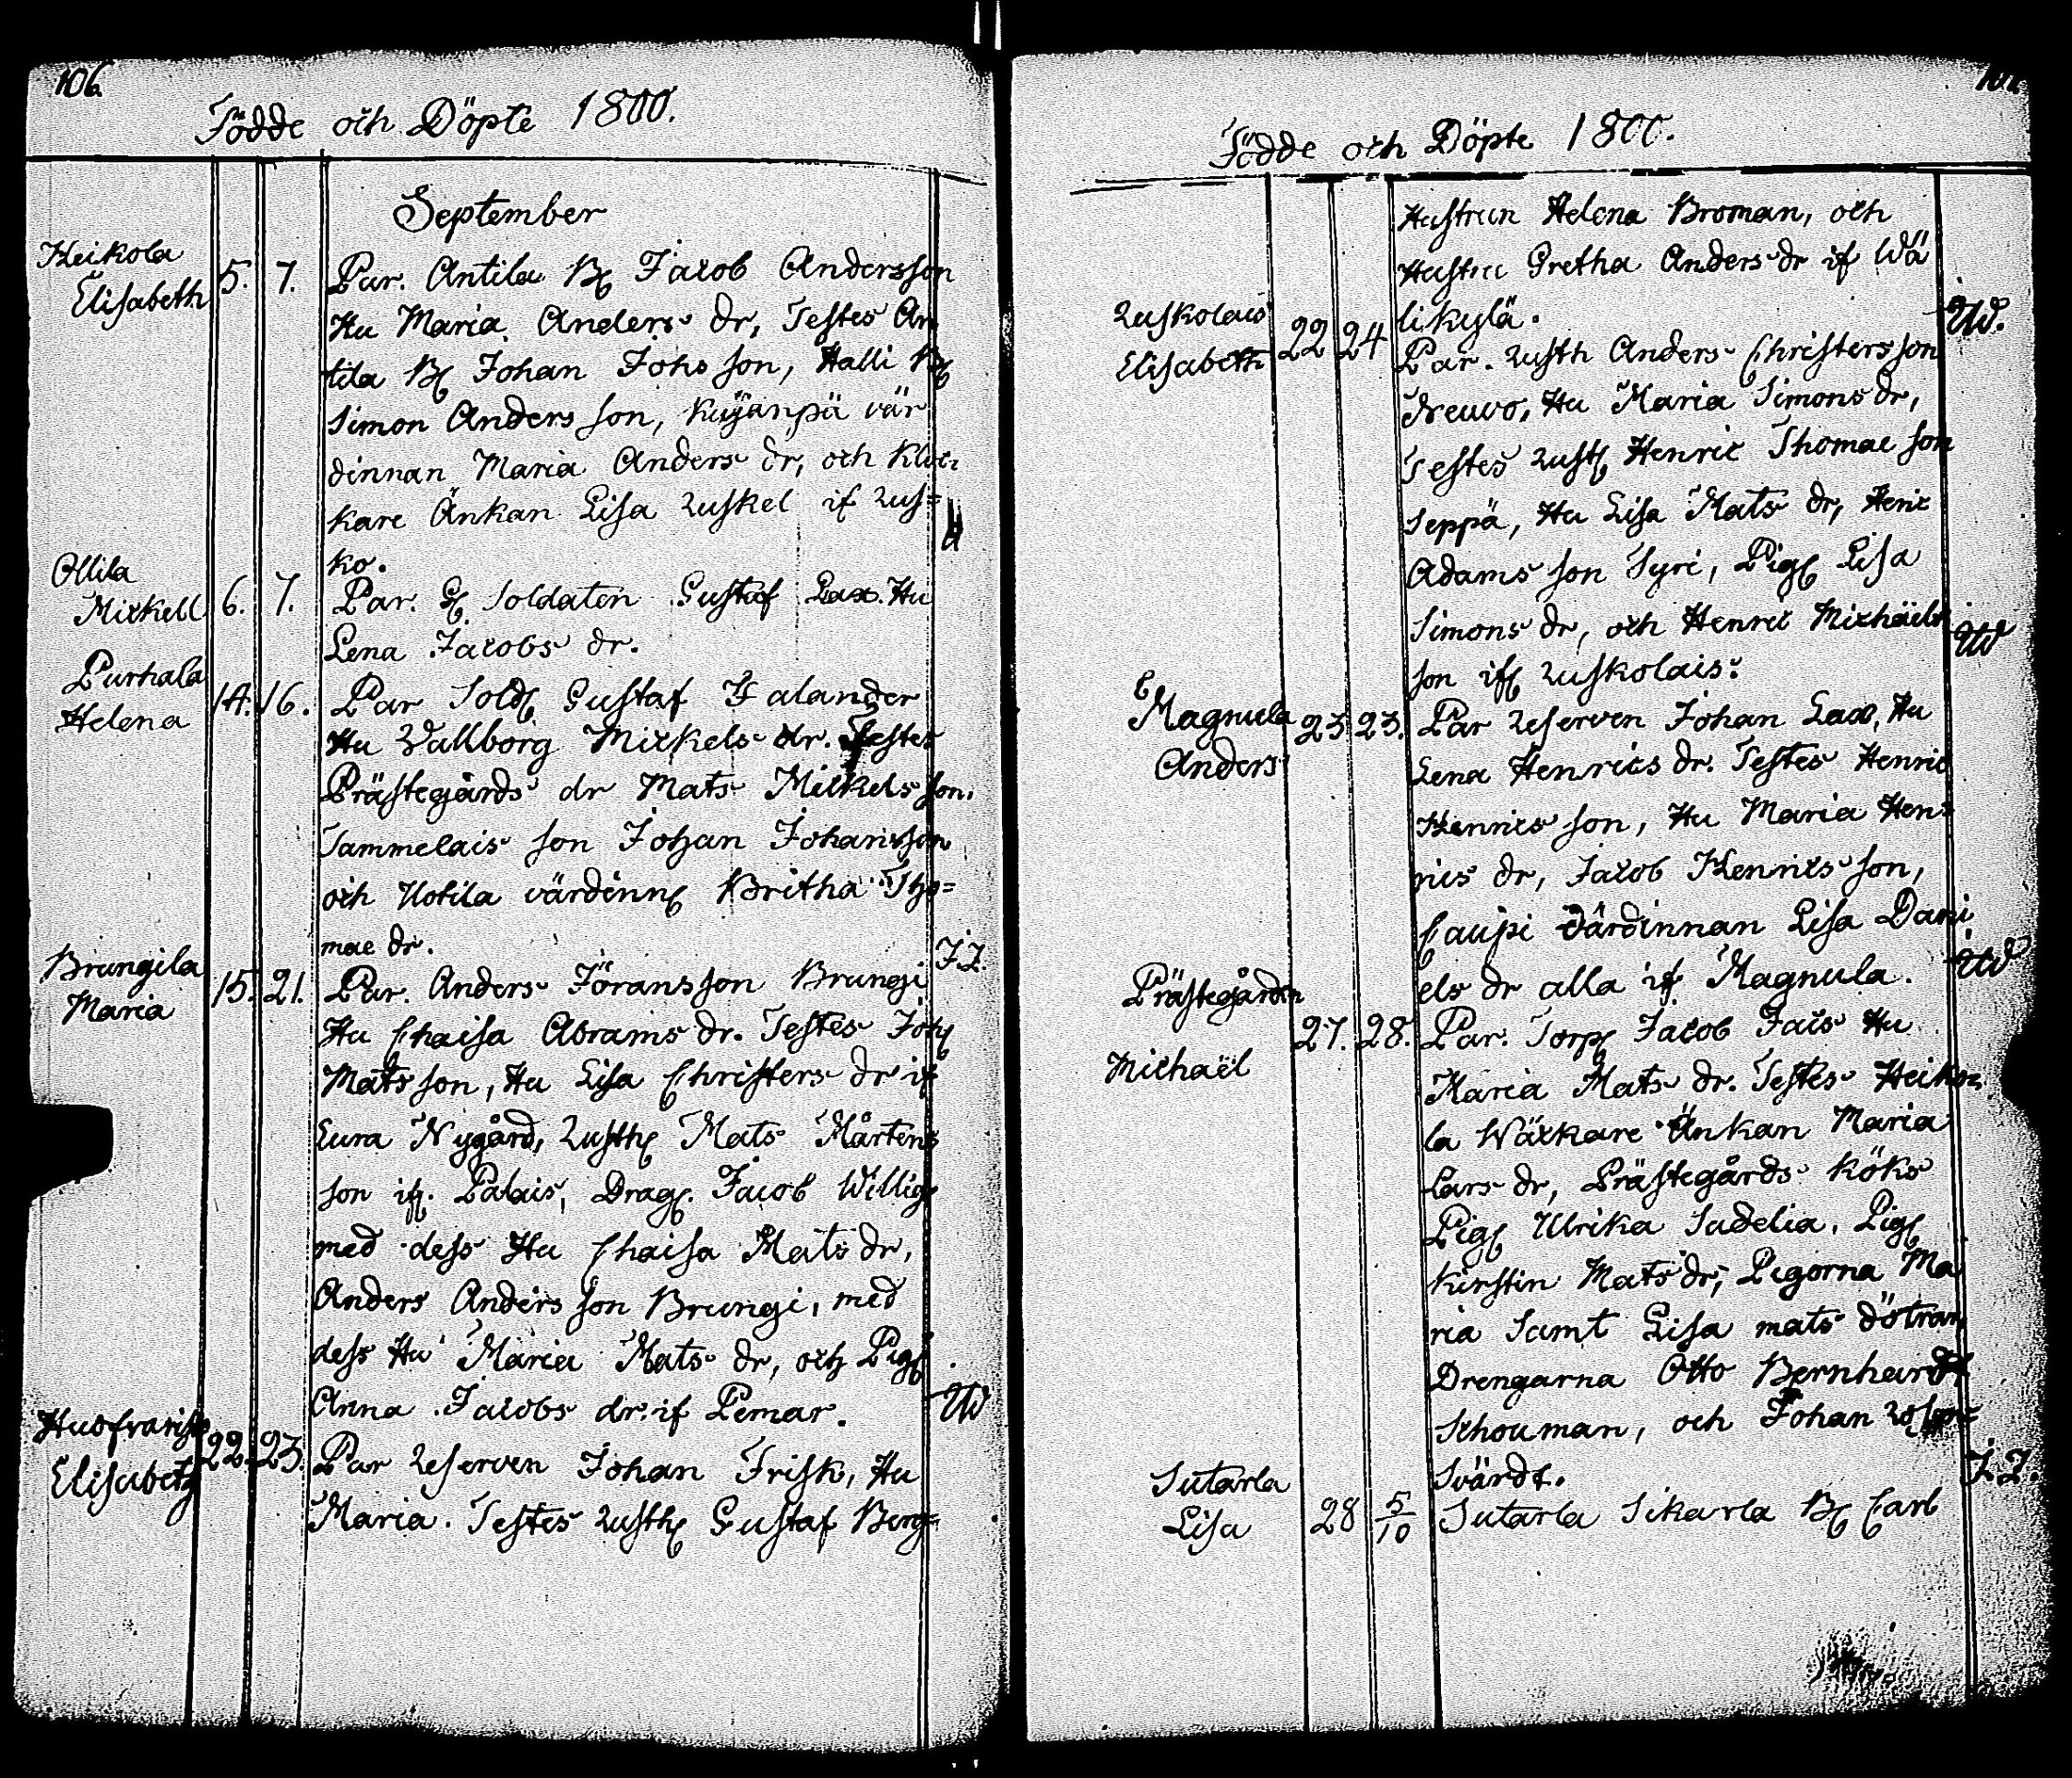 106.
Födde och Döpte 1800.
September
Heikola
Elisabeth 5. 7. Par. Antila Bf Jacob Andersson
Hu Maria Anders dr, Testes An
tila Bf Johan Johsson, Halli Bf
Simon Andersson, Kujanpä vär
dinnan Maria Anders dr, och Kloc
kare Änkan Lisa Ruskel if Rus=
ko.
Ollila
Mickell 6. 7. Par. Gf Soldaten Gustaf Lax. Hu
Lena Jacobs dr.
Purhala
Helena 14. 16. Par Soldf Gustaf Falander
Hu Vallborg Mickels dr. Testes
Prästegårds dr Mats Mickelsson,
Tammelais son Johan Johansson
och Uotila värdinnf Britha Tho=
mae dr. J.J.
Brungila
Maria 15. 21. Par. Anders Jöransson Brungi
Hu Chaisa Abrams dr. Testes Johf
Matsson, Hu Lisa Christers dr if
Eura Nygård, Rusthf Mats Mårtens
son if. Palais, Dragf. Jacob Willig
med dess Hu Chaisa Mats dr,
Anders Andersson Brungi, med
dess Hu Maria Mats dr, och Pigf
Anna Jacobs dr. if Pemar. UW
Elisabeth 22. 23. Par Reserven Johan Frisk, Hu
Maria. Testes Rusthf Gustaf Berg=
Födde och Döpte 1800.
Hustrun Helena Broman, och
Hustru Gretha Anders dr if Wä
likylä. UW.
Ruskolais
Elisabeth 22 24 Par. Rusth Anders Christersson
Neuvo, Hu Maria Simons dr,
Testes Rustf Henric Thomae son
Seppä, Hu Lisa Mats dr, Henr
Adams son Syri, Pigf Lisa
Simons dr, och Henric Michaels
son if Ruskolais. UW
Magnula
Anders 23. 23. Par Reserven Johan Lax, Hu
Lena Henrics dr. Testes Henric
Henrics son, Hu Maria Hen=
rics dr, Jacob Henrics son,
Caupi Värdinnan Lisa Dani
els dr alla if Magnula. UW
Prästegården
Michaël 27. 28. Par. Torpf Jacob Fais Hu
Maria Mats dr. Testes Heiko=
la Wäckare Änkan Maria
Lars dr, Prästegårds Köks
Pigf Ulrika Sadelia, Pigf
Kirstin Mats dr, Pigorna Ma
ria Samt Lisa mats dötrar,
Drengarna Otto Bernhardt
Schouman, och Johan
Svärdt. J.J.
Sutarla
Lisa 28 5/10 Sutarla Sikarla Bf Carl